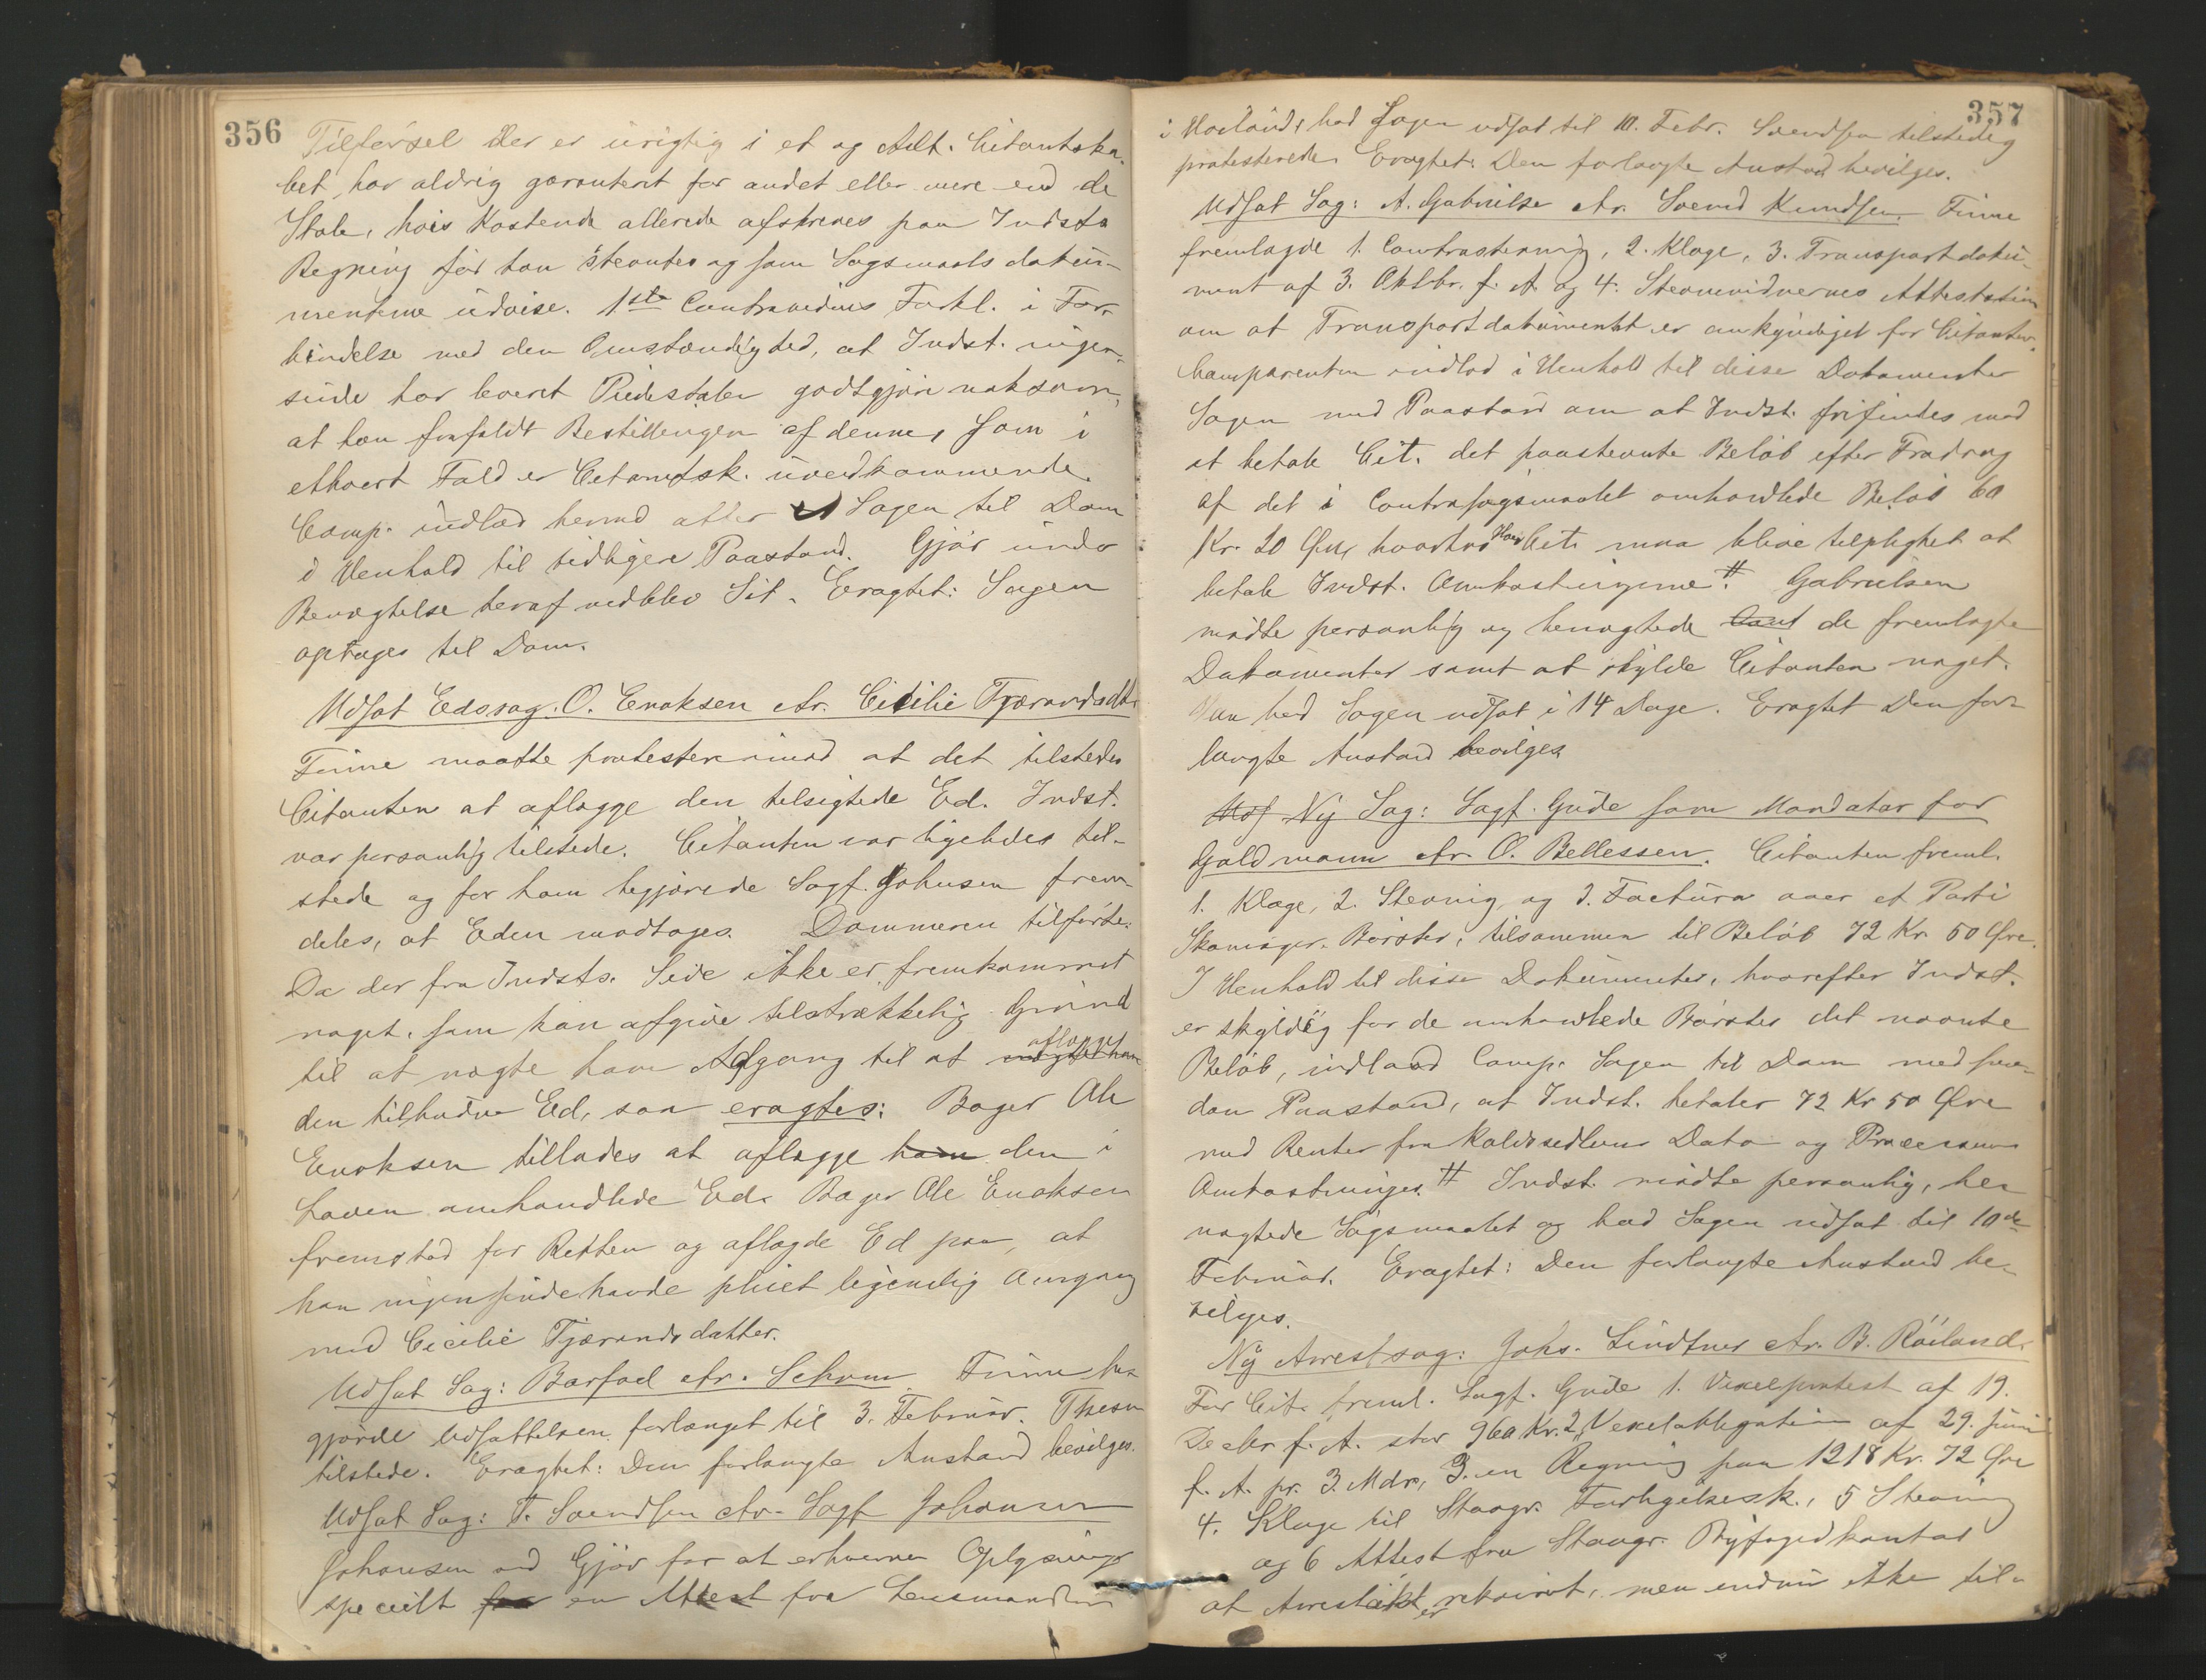 356
Tilførsel der er urigtig i et og Alt. Citantska-
bet har aldrig garanteret for andet eller mere end de
Stole, hvis Kostende allerede afskreves paa Indsts
Regning før han stevntes og som Sagsmaals doku-
menterne udvise. 1ste Contravidnes Forkl. i For-
bindelse med den Omstændighed, at Indst. ingen-
sinde har leveret Piedestaler godtgjøre noksom,
at han frafaldt Bestillingen af denne, som i
ethvert Fald er Citantsk. uvedkommende.
Comp. indlod hermed atter Sagen til Dom
i Henhold til tidligere Paastand. Gjør under
Benægtelse heraf vedblev Sit. Eragtet: Sagen
optages til Dom.
Udsat Edssag: O. Enoksen ctr. Cicilie Tjærandsdtr
Finne maatte protestere imod at det tilstedes
Citanten at aflægge den tilsigtede Ed. Indst.
var personlig tilstede. Citanten var ligeledes til-
stede og for ham begjærede Sagf. Johnsen frem-
deles, at Eden modtoges. Dommeren tilførte:
Da der fra Indsts. Side ikke er fremkommet
noget, som kan afgive tilstrækkelig Grund
til at nægte ham Adgang til at aflægge
den tilbudne Ed, saa eragtes: Bager Ole
Enoksen tillades at aflægge ham den i
Loven omhandlede Ed. Bager Ole Enoksen
fremstod for Retten og aflagde Ed paa, at
han ingensinde havde pleiet legemlig Omgang
med Cicilie Tjærandsdatter.
Udsat Sag: Barfod ctr. Schram Finne be-
gjærde Udsættelsen forlænget til 3. Februar.
tilstede. Eragtet: Den forlangte Anstand bevilges.
Udsat Sag: T. Svendsen ctr. Sagf Johansen
Johansen ved Gjør for at erhverve Oplysninger
specielt for en Attest fra Lensmanden
357
i had Sagen udsat til 10. Febr. Svendsen tilstede og
protesterede. Eragtet: Den forlangte Anstand bevilges.
Udsat Sag: A. Gabrielsen ctr. Svend Knudsen. Finne
fremlagde 1. Contrastevning, 2. Klage, 3. Transportdoku-
ment af 3. Oktbr. f. A. og 4. Stevnevidnernes Attestation
om at Transportdokumentet er ankyndiget for Citanten.
Comparenten indlod i Henhold til disse Dokumenter
Sagen med Paastand om at Indst. frifindes mod
at betale Cit. det paastevnte Beløb efter Fradrag
af det i Contrasagsmaalet omhandlede Beløb 60
Kr. 20 Øre, hvorhos Hoved Cit. maa blive tilpligtet at
betale Indst. Omkostningerne. # Gabrielsen
mødte personlig og benægtede Cont de fremlagte
Dokumenter samt at skylde Citanten noget.
Han bad Sagen udsat i 14 Dage. Eragtet Den for-
langte Anstand bevilges
Uds Ny Sag: Sagf. Gude som Mandatar for
Goldmann ctr. O. Bellessen. Citanten freml.
1. Klage, 2. Stevning, og 3. Factura over et Parti
Skomager-Børster, tilsammen til Beløb 72 Kr. 50 Øre.
I Henhold til disse Dokumenter, hvorefter Indst.
er skyldig for de omhandlede Børster det nævnte
Beløb, indlod Comp. Sagen til Dom med saa-
dan Paastand, at Indst. betaler 72 Kr 50 Øre
med Renter fra Kaldssedlens Dato og Processens
Omkostninger. # Indst. mødte personlig, be-
nægtede Sagsmaalet og bad Sagen udsat til 10de
Februar. Eragtet: Den forlangte Anstand be-
vilges.
Ny Arrestsag: Johs. Lindtner ctr. B. Röiland.
For Cit. freml. Sagf. Gude 1. Vexelprotest af 19.
Decbr f. A. stor 960 Kr. 2, Vexelobligation af 29. Juni
f. A. pr. 3. Mdr, 3. en Regning paa 1218 Kr. 72 Øre
4. Klage til Stavgr. Forligelsesk., 5 Stevning
og 6 Attest fra Stavgr. Byfogedkontor
at Arrest er rekvirert, men endnu ikke til-